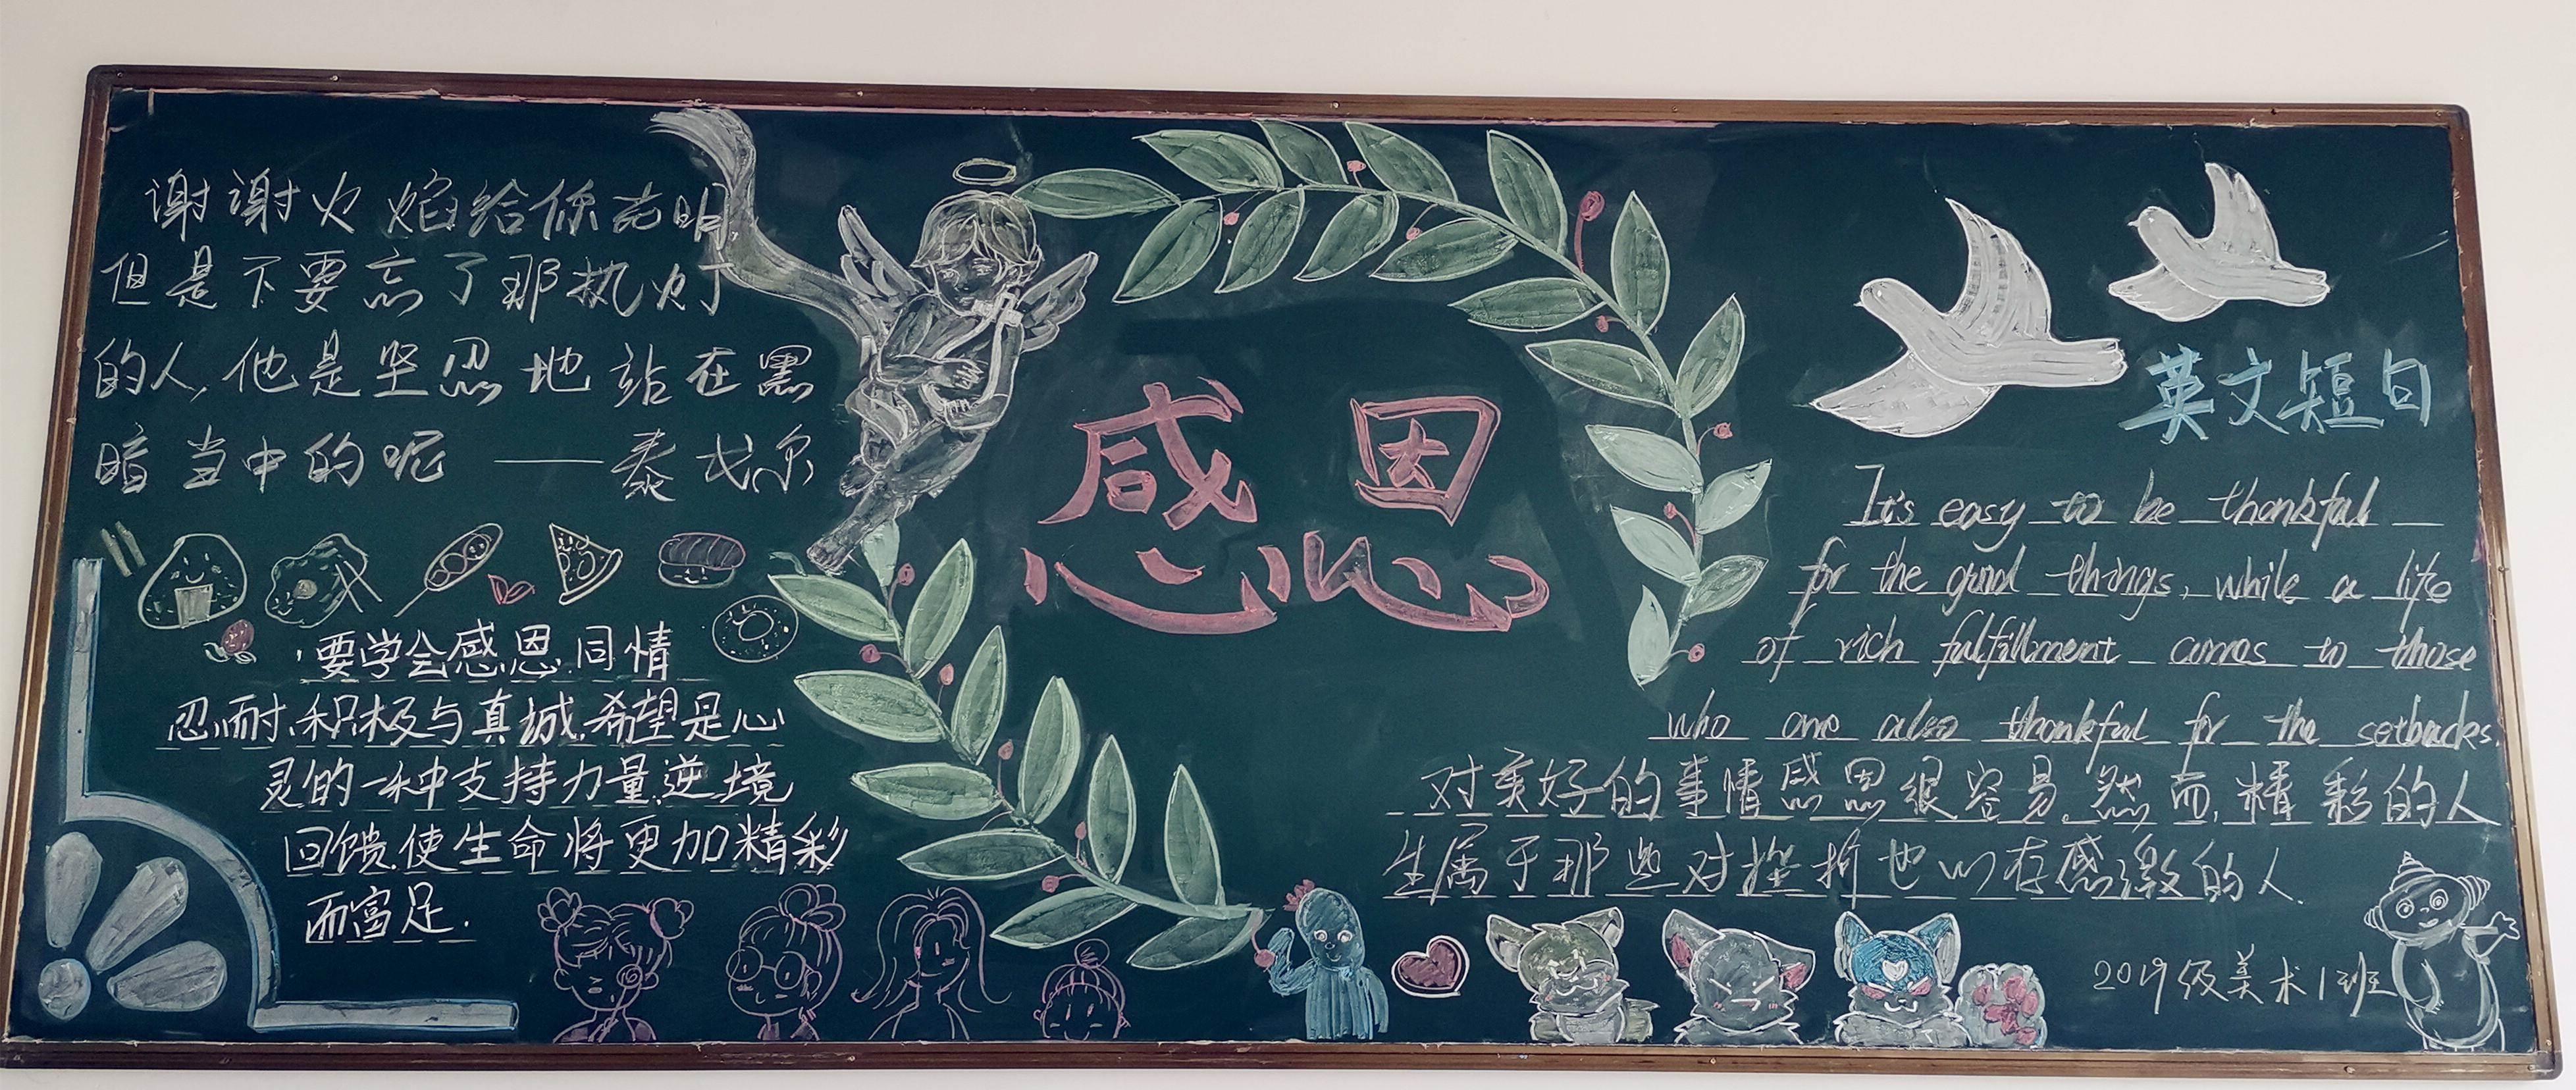 谢谢火焰给你光明
但是不要忘了那执灯
的人,他是坚忍地站在黑
暗当中的呢 ——泰戈尔
要学会感恩.同情
忍耐、积极与真诚.希望是心
灵的一种支持力量.逆境
回馈.使生命将更加精彩
而富足.
感恩
英文短句
It's easy to be thankful
for the good things, while a life
of rich fulfillment comes to those
who are also thankful for the setbacks.
对美好的事情感恩很容易.然而,精彩的人
生属于那些对挫折也心存感激的人.
2019级美术1班